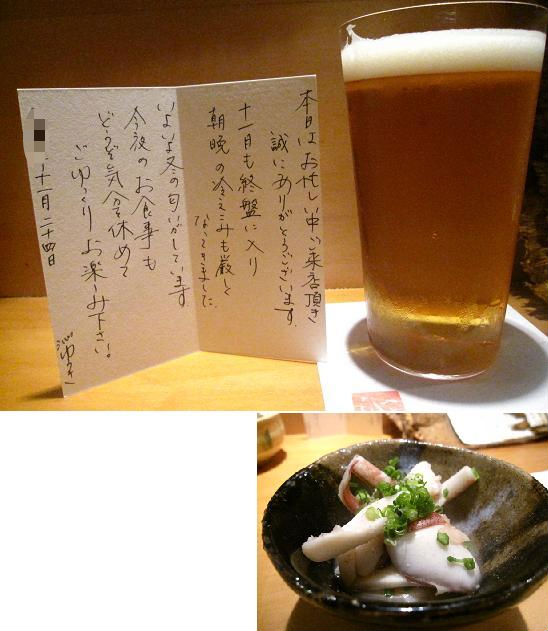 本日はお忙しい中ご来店頂き
誠にありがとうございます。
十一月も終盤に入り
朝晩の冷えこみも厳しく
なってきました。
いよいよ冬の匂いがしています
今夜のお食事も
どうぞ気分を休めて
ごゆっくりお楽しみ下さい。
十一月二十四日